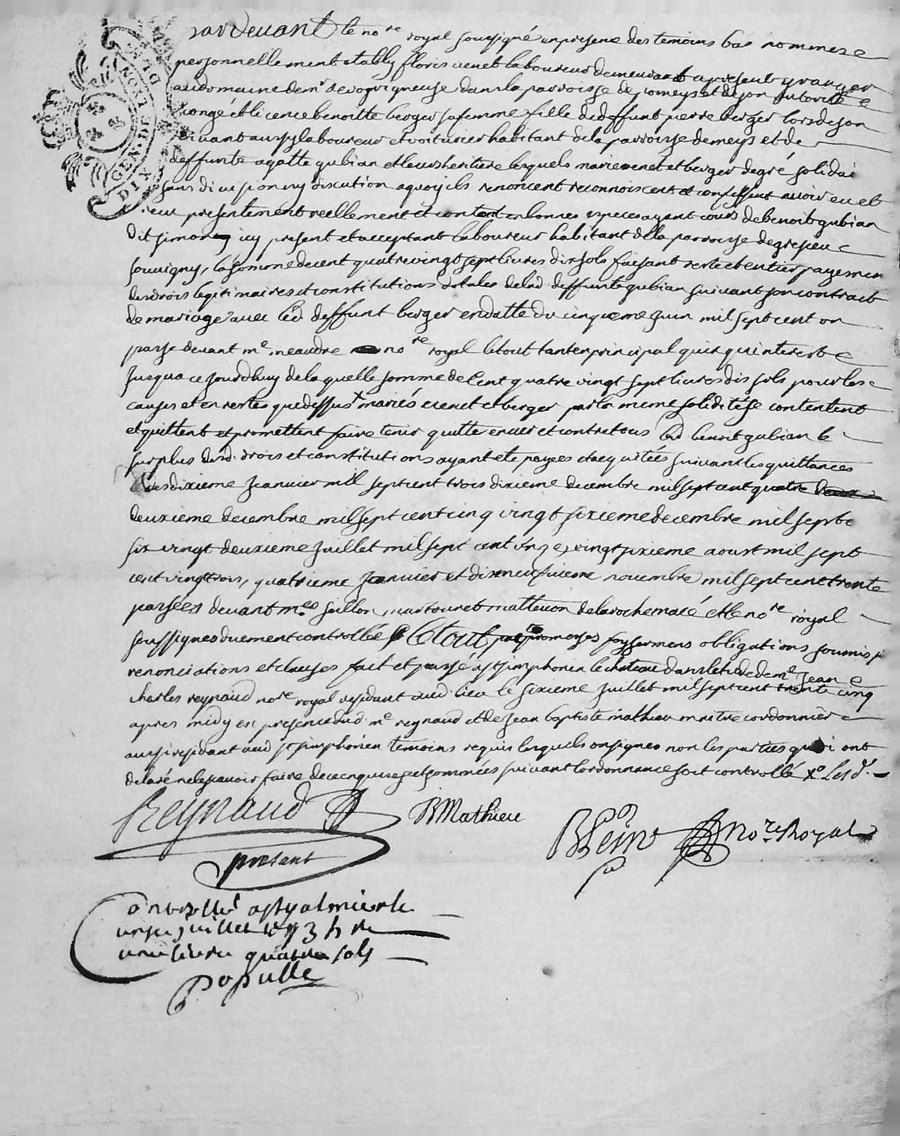 GEN. DE LYON
DIX D
pardevant le no.re royal soussigné en presence des temoins bas nommes
personnellement estably floris venet laboureur demeurant a present granger
au domaine de m.r de dans la parroisse de pomeys et de son autorité
congé et licence benoitte berger sa femme fille de deffunt pierre berger lors de son
vivant aussy laboureur et voiturier habitant de la parroisse de meys et de
deffunte agatte gubian et leurs heritiere lesquels mariés venet et berger de gré solidai
sans division ny discution a quoy ils renoncent reconnoissent et confessent avoir eu et
receu presentement reellement et contant en bonnes especes ayant cours de benoit gubian
dit simon icy present et acceptant laboureur habitant de la parroisse de grezieu
souvigny, la somme de cent quatre vingt sept livres dix sols faisant reste et entier payemen
des droits legitimaires et constitutions dotales de lad deffunte gubian suivant son contract
de mariage avec led deffunt berger en datte du cinquieme juin mil sept cent on
passé devant m.e meaudre no.re royal le tout tant en principal qu'interest
jusqua ce jourdhuy de laquelle somme de cent quatre vingt sept livres dix sols pour les
causes et en restes que dessus mariés venet et berger par la meme solidité se contentent
et quittent et promettent faire tenir quitte envers et contre tous led benoit gubian le
surplus desd droits et constitutions ayant eté payées et acquitées suivant les quittances
des dixieme janvier mil sept cent trois dixieme decembre mil sept cent quatre
deuxieme decembre mil sept cent cinq vingt sixieme decembre mil sept c
six vingt deuxieme juillet mil sept cent onze, vingt sixieme aoust mil sept
cent vingt trois, quatrieme janvier et dix neufvieme novembre mil sept cent trente
passées devant m.es et matteuon de la roche et le no.re royal
soussignes duement controllé le tout par promesses foy sermens obligations soumis
renonciations et clauses fait et passé a st simphorien le chateau dans letude de m.e jean
charles reynaud no.re royal residant aud lieu le sixieme juillet mil sept cent trente cinq
apres midy en presence dud m.e reynaud et de jean baptiste mathieu maitre cordonnier
aussi residant aud st simphorien temoins requis lesquels ont signes non les parties qui ont
declaré ne le scavoir faire de ce enquises et sommées suivant lordonnance soit controllé
Reynaud
present
B Mathieu
no.re Royal
Controllé a st galmier le
onze juillet 1735 R
une livre quatre sols
Populle